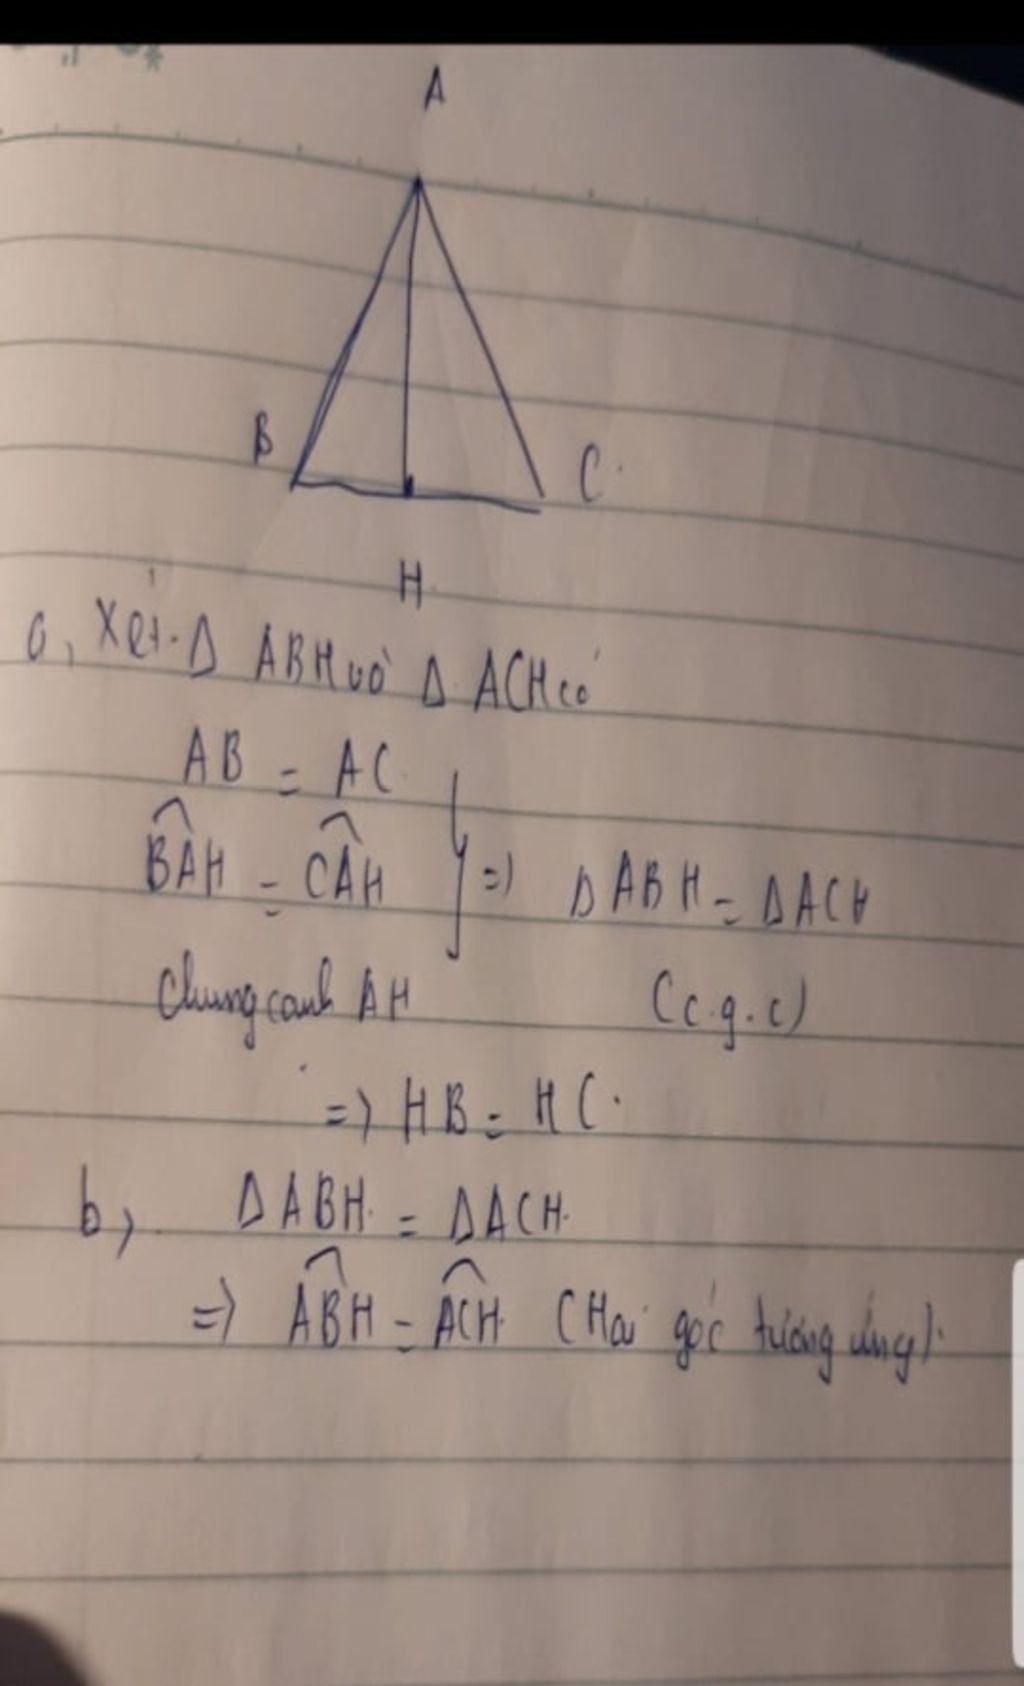 A
B
C.
H
a, Xét. Δ ABH và Δ ACH có
AB = AC.
BAH = CAH } => ΔABH = ΔACH
Chung cạnh AH (c.g.c)
=> HB = HC.
b, ΔABH. = ΔACH.
=> ABH = ACH. (Hai góc tương ứng).